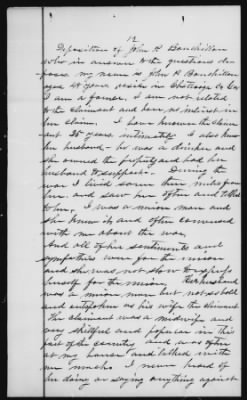 12
Deposition of John R Bouchillon
who in answer to the questions
pose my name is John R Bouchillon
aged 48 years reside in Chattooga Co Ga
I am a farmer, I am not related
to the claimant and have no interest in
her claim. I have known the claim-
ant 25 years intimately I also knew
her husband - he was a drinker and
she owned the property and had her
husband to support. During the
war I lived some three miles from
her and saw her often and talked
to her, I was a union man and
she knew it and often conversed
with me about the war,
And all of her sentiments and
sympathies were for the union
and she was not slow to express
herself for the union, Her husband
was a union man but not as bold
and outspoken as his wife the claimant.
The claimant was a midwife and
very skillful and popular in this
part of the country and was often
at my house and talked with
me much. I never heard of
her doing or saying anything against